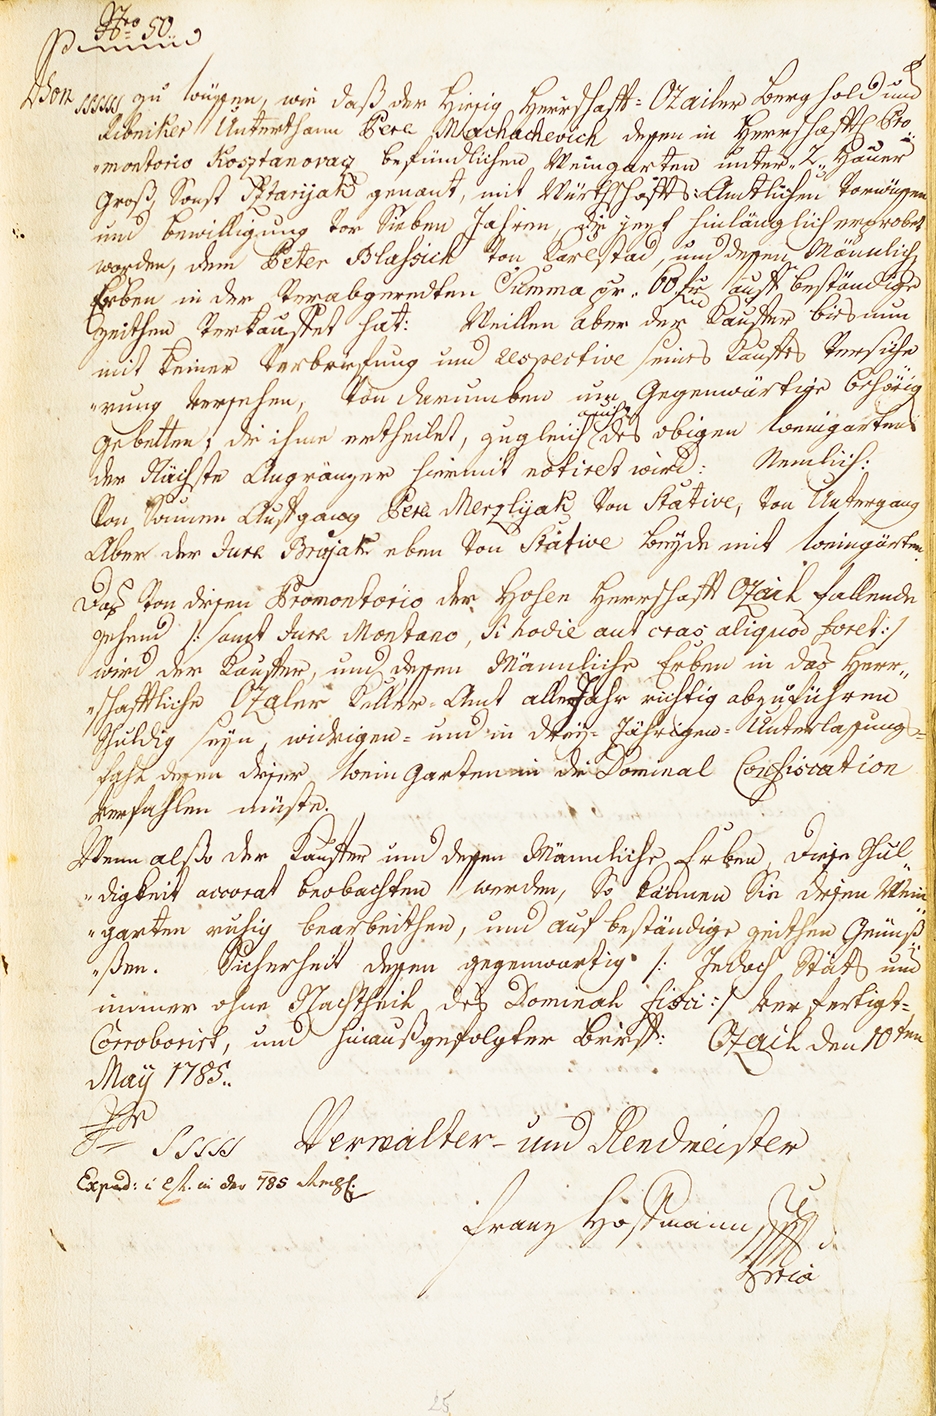 Nro 50.
Von zu wüssen, wie daß der hiesig Herrschaft=Ozailer Berghold und
Ribniker Unterthann Pere Machachevich dessen in Herrschaftl Pro
"montorio Kosztanovacz befündlichen Weingarten unter "2" Hauer
Groß, Sonst Sztarijak genant, mit Würtschafts=Amtlichen Vorwüssen
und bewilligung vor Sieben Jahren, die jezt hinlänglich erprobet
worden, dem Peter Blassich von Karlstad, und dessen Männlich
Erben in der Verabgeredten Summa pr. 60 fr auf beständige
zeithen Verkauffet hat: Weillen aber der Kauffer bis nun
mit keiner Verbriefung und respective seines Kaufes Versiche
"rung versehen, Von darumben um Gegenwärtige behörig
gebetten; die ihme ertheilet, zugleich auch des obigen Weingartens
der Nächste Angränzer hiermit notiret wird: Nemlich:
Von Sonnen Aufgang Pere Merzlijak Von Stative, Von Untergang
Aber der Jura Brajak eben Von Stative beyde mit Weingärten.
Das Von diesen Promontorio der Hohen Herrschaft Ozail fallende
gehend /: samt Jure Montano, si hodie aut cras aliquod foret :/
wird der Kauffer, und dessen Männliche Erben in das Herr"
"schafftliche Ozaler Keller=Amt alle Jahr richtig abzuführen
schuldig seyn, widrigen= und in drey=Jährigen=Unterlasungs=
fahl dessen dieser Weingarten in die Dominal Confiscation
verfahlen müste.
Wenn also der Kauffer und dessen Männliche Erben, diese Schul"
"digkeit accorat beobachten werden, So können Sie diesen Wein
"garten ruhig bearbeithen, und auf beständige zeithen Genüß
"ßen. Sicherheit dessen gegenwärtig /: Jedoch Stäts und
immer ohne Nachtheil des Dominal fisci :/ verfertigt=
Corroborirt, und hinausgefolgter Brief: Ozail den 10ten
May 1785.
Verwalter= und Rendmeister
Exped: in der 785
Franz Hoffmann